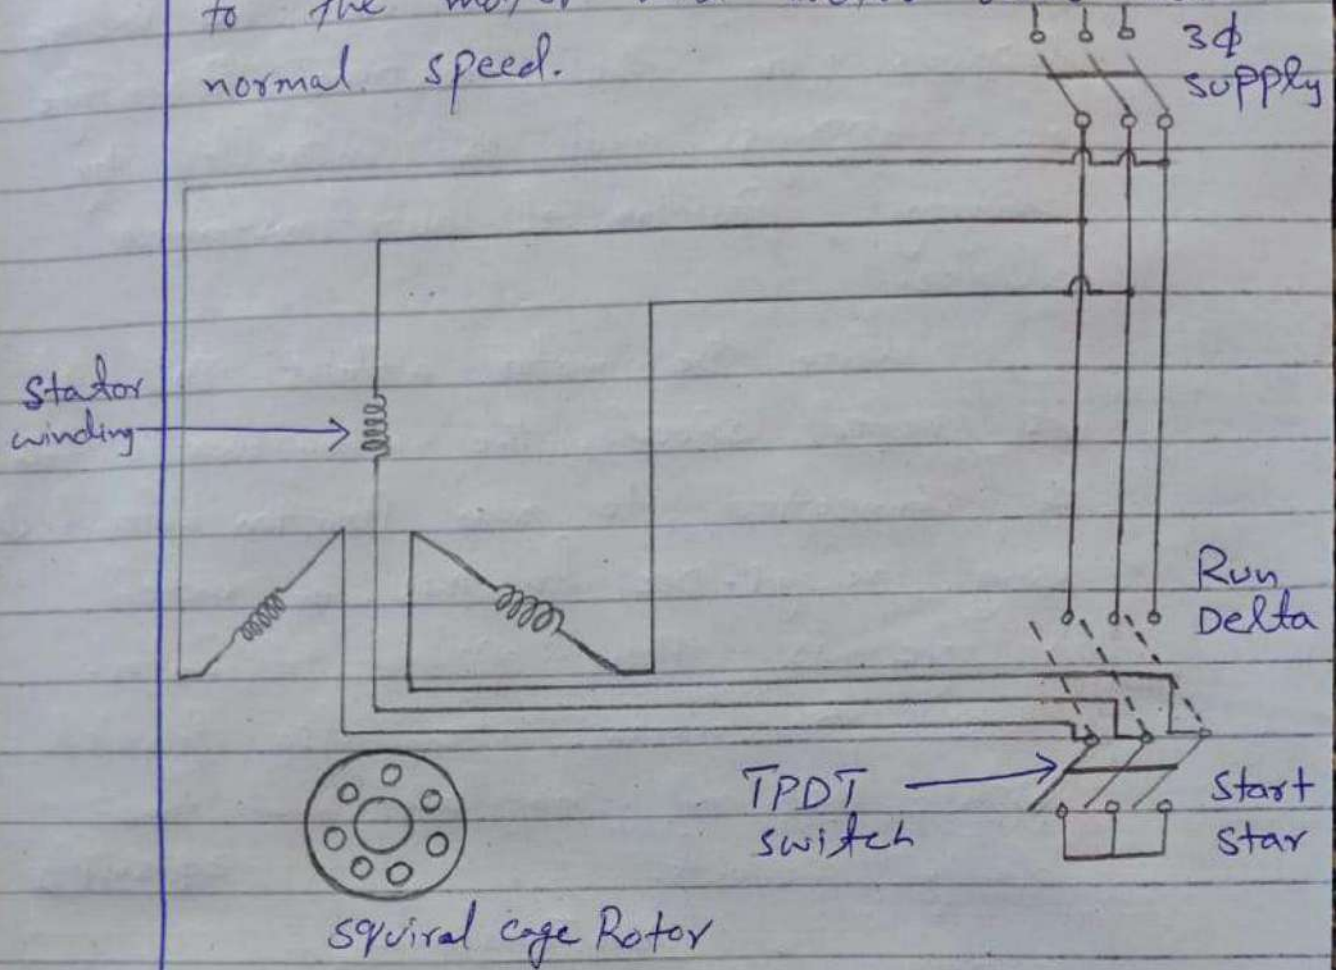 to the
normal speed.
3ϕ
supply
Stator
winding
Run
Delta
TPDT
switch
Start
Star
squiral cage Rotor